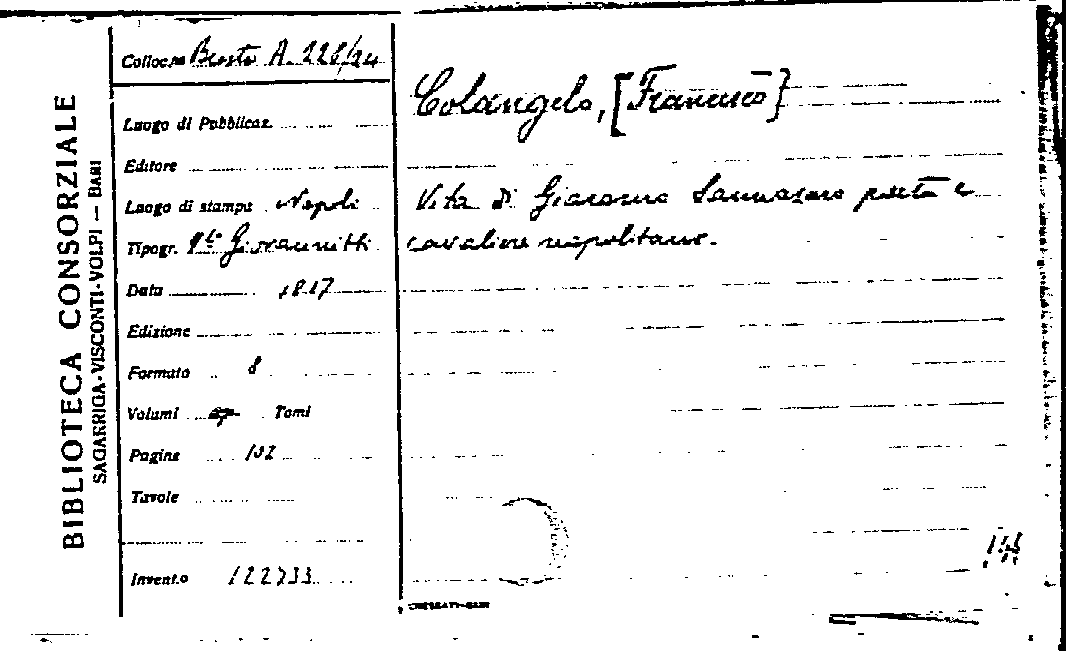 BIBLIOTECA CONSORZIALE
SAGARRIGA-VISCONTI-VOLPI — BARI
Colloc.ne A. 228/24
Luogo di Pubblicaz.
Editore
Luogo di stampa Napoli
Tipogr. Giovannitti
Data 1817
Edizione
Formato 8
Volumi Tomi
Pagine
Tavole
Invent.o 122733
Colangelo, [Francesco]
Vita di Giacomo Sannazaro poeta e
cavaliere napolitano.